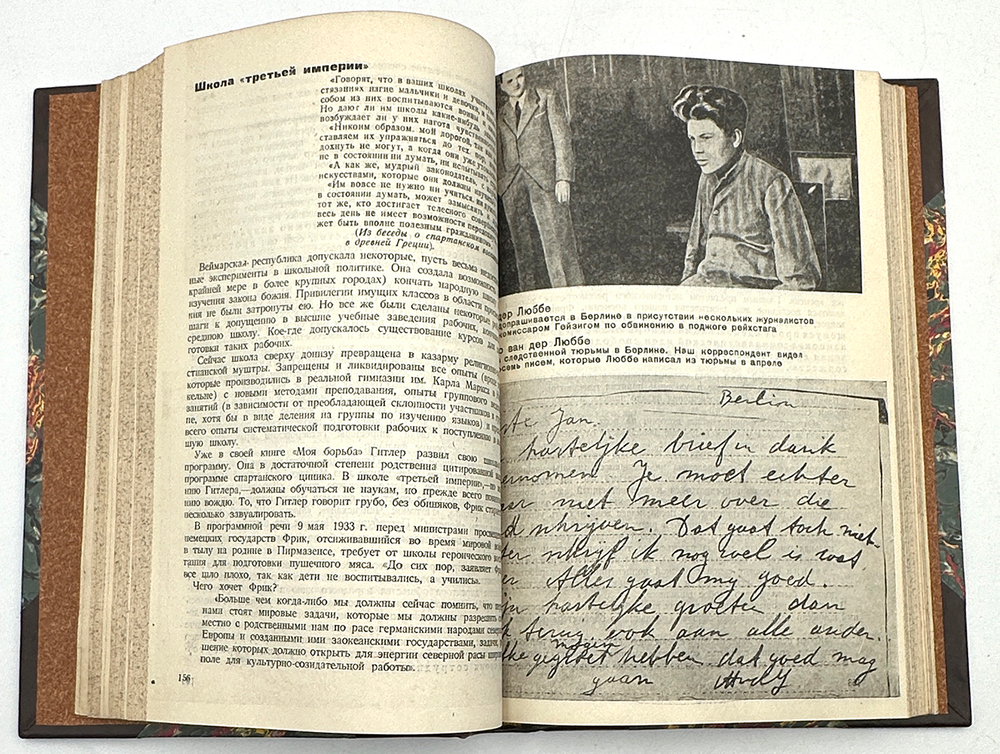 Школа «третьей империи»
«Говорят, что в ваших школах
стязаниях нагие мальчики и девочки, и
собом из них воспитываются воины и
Но дают ли им школы какие-нибудь
возбуждает ли у них нагота чувственно
«Никоим образом, мой дорогой, так как
ставляем их упражняться до тех пор, пока
дохнуть не могут, а когда они уже
не в состоянии ни думать, ни испытывать
«А как же, мудрый законодатель, с
искусствами, которые они должны изучать
«Им вовсе не нужно ни учиться, ни
в состоянии думать, может замыслить
тот же, кто достигает телесного совершен
весь день не имеет возможности передохнуть
жет быть вполне полезным гражданином».
(Из беседы о спартанском
в древней Греции).
Веймарская республика допускала некоторые, пусть весьма
ные эксперименты в школьной политике. Она создала возможность
крайней мере в более крупных городах) кончать народную школу
изучения закона божия. Привилегии имущих классов в области
ния не были затронуты ею. Но все же были сделаны некоторые
шаги к допущению в высшие учебные заведения рабочих,
среднюю школу. Кое-где допускалось существование курсов для
готовки таких рабочих.
Сейчас школа сверху донизу превращена в казарму
стианской муштры. Запрещены и ликвидированы все опыты
которые производились в реальной гимназии им. Карла Маркса в
кельне) с новыми методами преподавания, опыты группового
занятий (в зависимости от преобладающей склонности участников
пе, хотя бы в виде деления на группы по изучению языков) и
всего опыты систематической подготовки рабочих к поступлению в
шую школу.
Уже в своей книге «Моя борьба» Гитлер развил свою
программу. Она в достаточной степени родственна цитированной
программе спартанского циника. В школе «третьей империи»,—по
нию Гитлера,—должны обучаться не наукам, но прежде всего
нию вождю. То, что Гитлер говорит грубо, без обиняков, Фрик
несколько завуалировать.
В программной речи 9 мая 1933 г. перед министрами
немецких государств Фрик, отсиживавшийся во время мировой
в тылу на родине в Пирмазенсе, требует от школы героического
тания для подготовки пушечного мяса. «До сих пор, заявляет Фрик
все шло плохо, так как дети не воспитывались, а учились».
Чего хочет Фрик?
«Больше чем когда-либо мы должны сейчас помнить, что
нами стоят мировые задачи, которые мы должны разрешить
местно с родственными нам по расе германскими народами
Европы и созданными ими заокеанскими государствами,
шение которых должно открыть для энергии северной расы
поле для культурно-созидательной работы».
156
дер Люббе
допрашивается в Берлине в присутствии нескольких журналистов
комиссаром Гейзигом по обвинению в поджоге рейхстага
ван дер Люббе
следственной тюрьмы в Берлине. Наш корреспондент видел
писем, которые Люббе написал из тюрьмы в апреле
Berlin
Jan.
hartelijke brief in dank
Je moet echter
niet meer over die
schrijven. Dat gaat toch niet
schrijf ik nog wel is wat
Alles gaat my goed.
hartelijke groeten dan
terug ook aan alle ander.
hebben dat goed mag
gaan